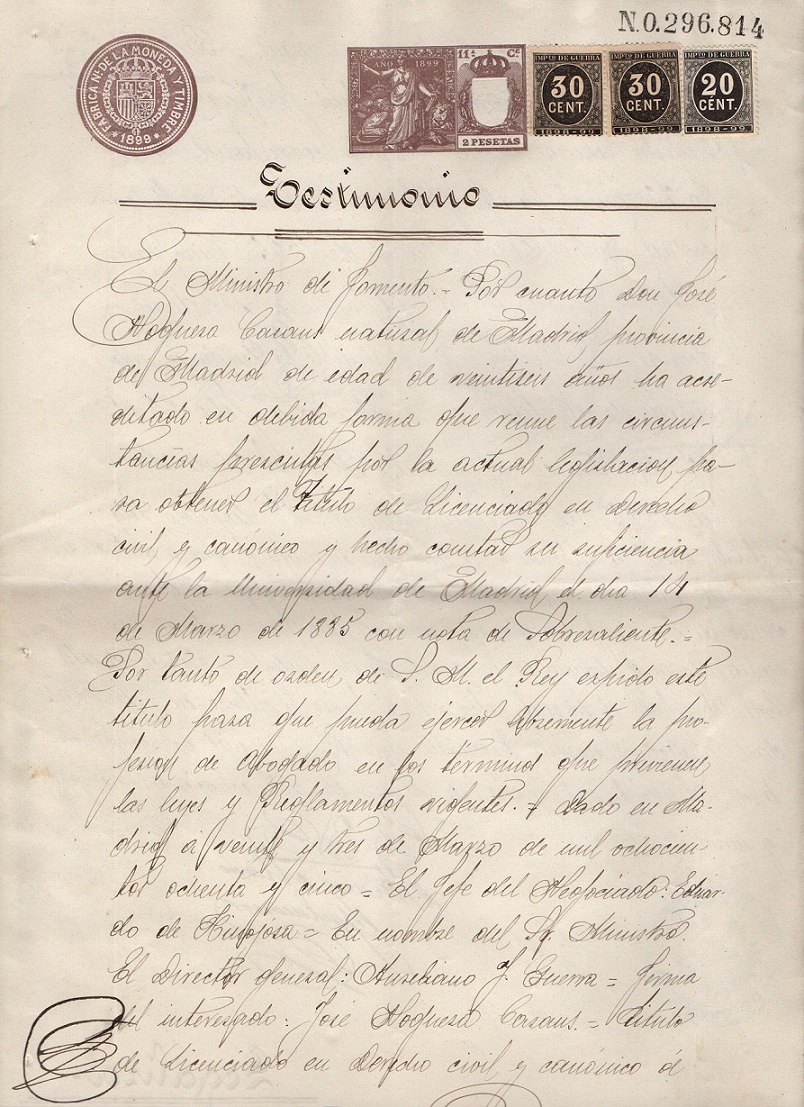 N.0.296.814
FÁBRICA Nal. DE LA MONEDA Y TIMBRE
* 1899 *
AÑO 1899
11ª Cª
2 PESETAS
IMPTO DE GUERRA
30
CENT.
1898-99
IMPTO DE GUERRA
30
CENT.
1898-99
IMPTO DE GUERRA
20
CÉNT.
1898-99
Testimonio
El Ministro de Fomento.= Por cuanto Don José
Noguera Casans natural de Madrid, provincia
de Madrid de edad de veintiseis años ha acre-
ditado en debida forma que reune las circuns-
tancias prescritas por la actual legislacion pa-
ra obtener el título de Licenciado en Derecho
civil y canónico y hecho constar su suficiencia
ante la Universidad de Madrid el dia 14
de Marzo de 1885 con nota de Sobresaliente.=
Por tanto de orden de S. M. el Rey expido este
título para que pueda ejercer libremente la pro-
fesion de Abogado en los términos que previenen
las leyes y Reglamentos vigentes.= Dado en Ma-
drid á veinte y tres de Marzo de mil ochocien-
tos ochenta y cinco = El Jefe del Negociado: Eduar-
do de Hinojosa = En nombre del Sr. Ministro.
El Director general: Aureliano F. Guerra = Firma
del interesado: José Noguera Casans.= título
de Licenciado en Derecho civil y canónico á